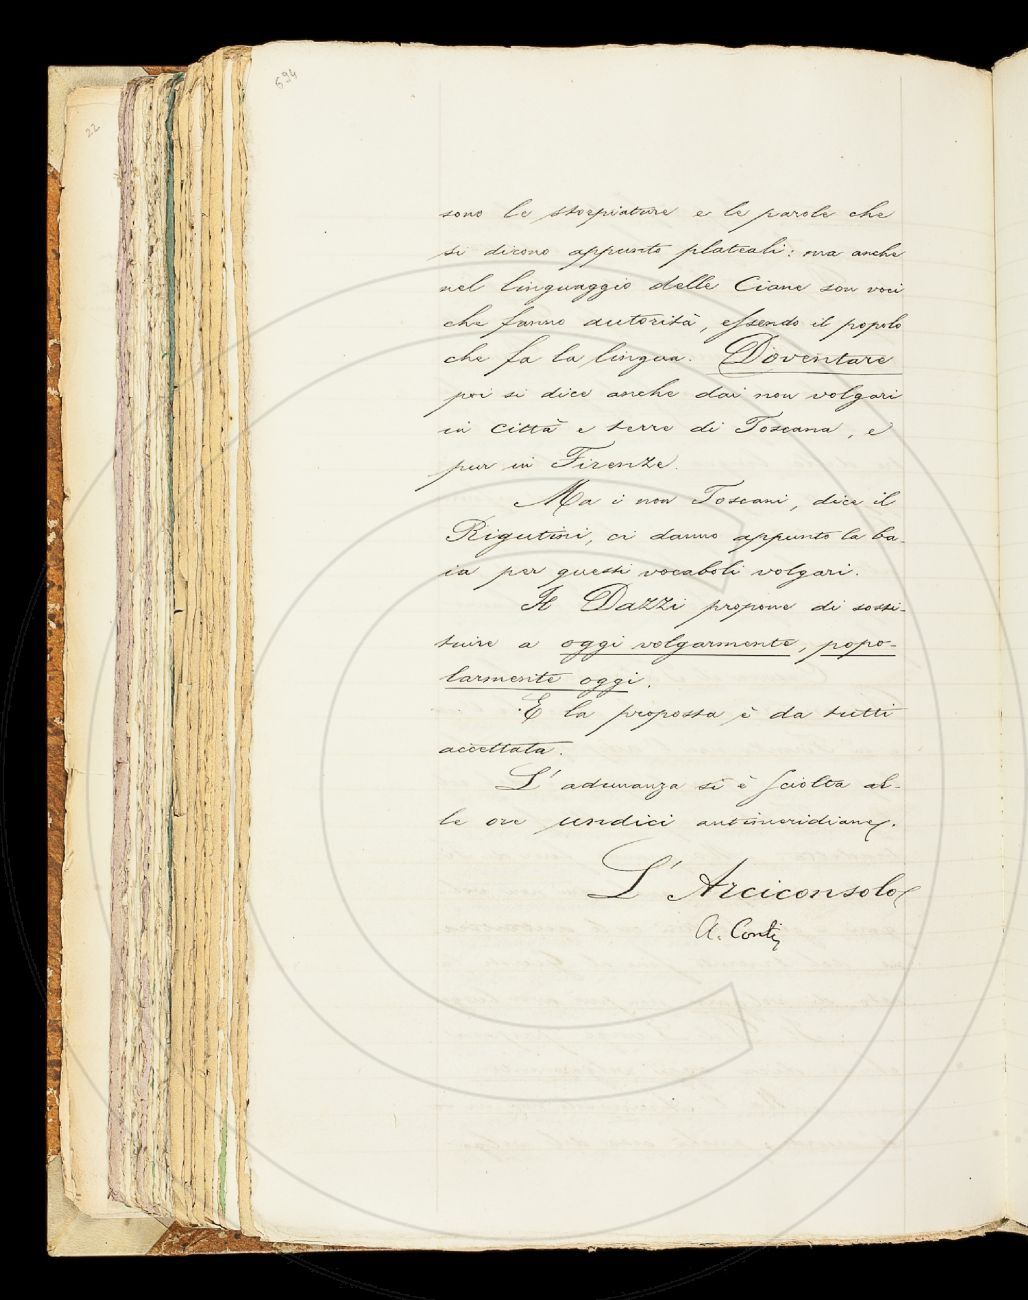 694
22
sono le storpiature e le parole che
si dicono appunto plateali: ma anche
nel linguaggio delle Ciane son voci
che fanno autorità, essendo il popolo
che fa la lingua. Doventare
poi si dice anche dai non volgari
in città e terre di Toscana, e
pur in Firenze.
Ma i non Toscani, dice il
Rigutini, ci danno appunto la ba-
ia per questi vocaboli volgari.
Il Dazzi propone di sosti-
tuire a oggi volgarmente, popo-
larmente oggi.
E la proposta è da tutti
accettata.
L'adunanza si è sciolta al-
le ore undici antimeridiane.
L'Arciconsolo
A. Conti